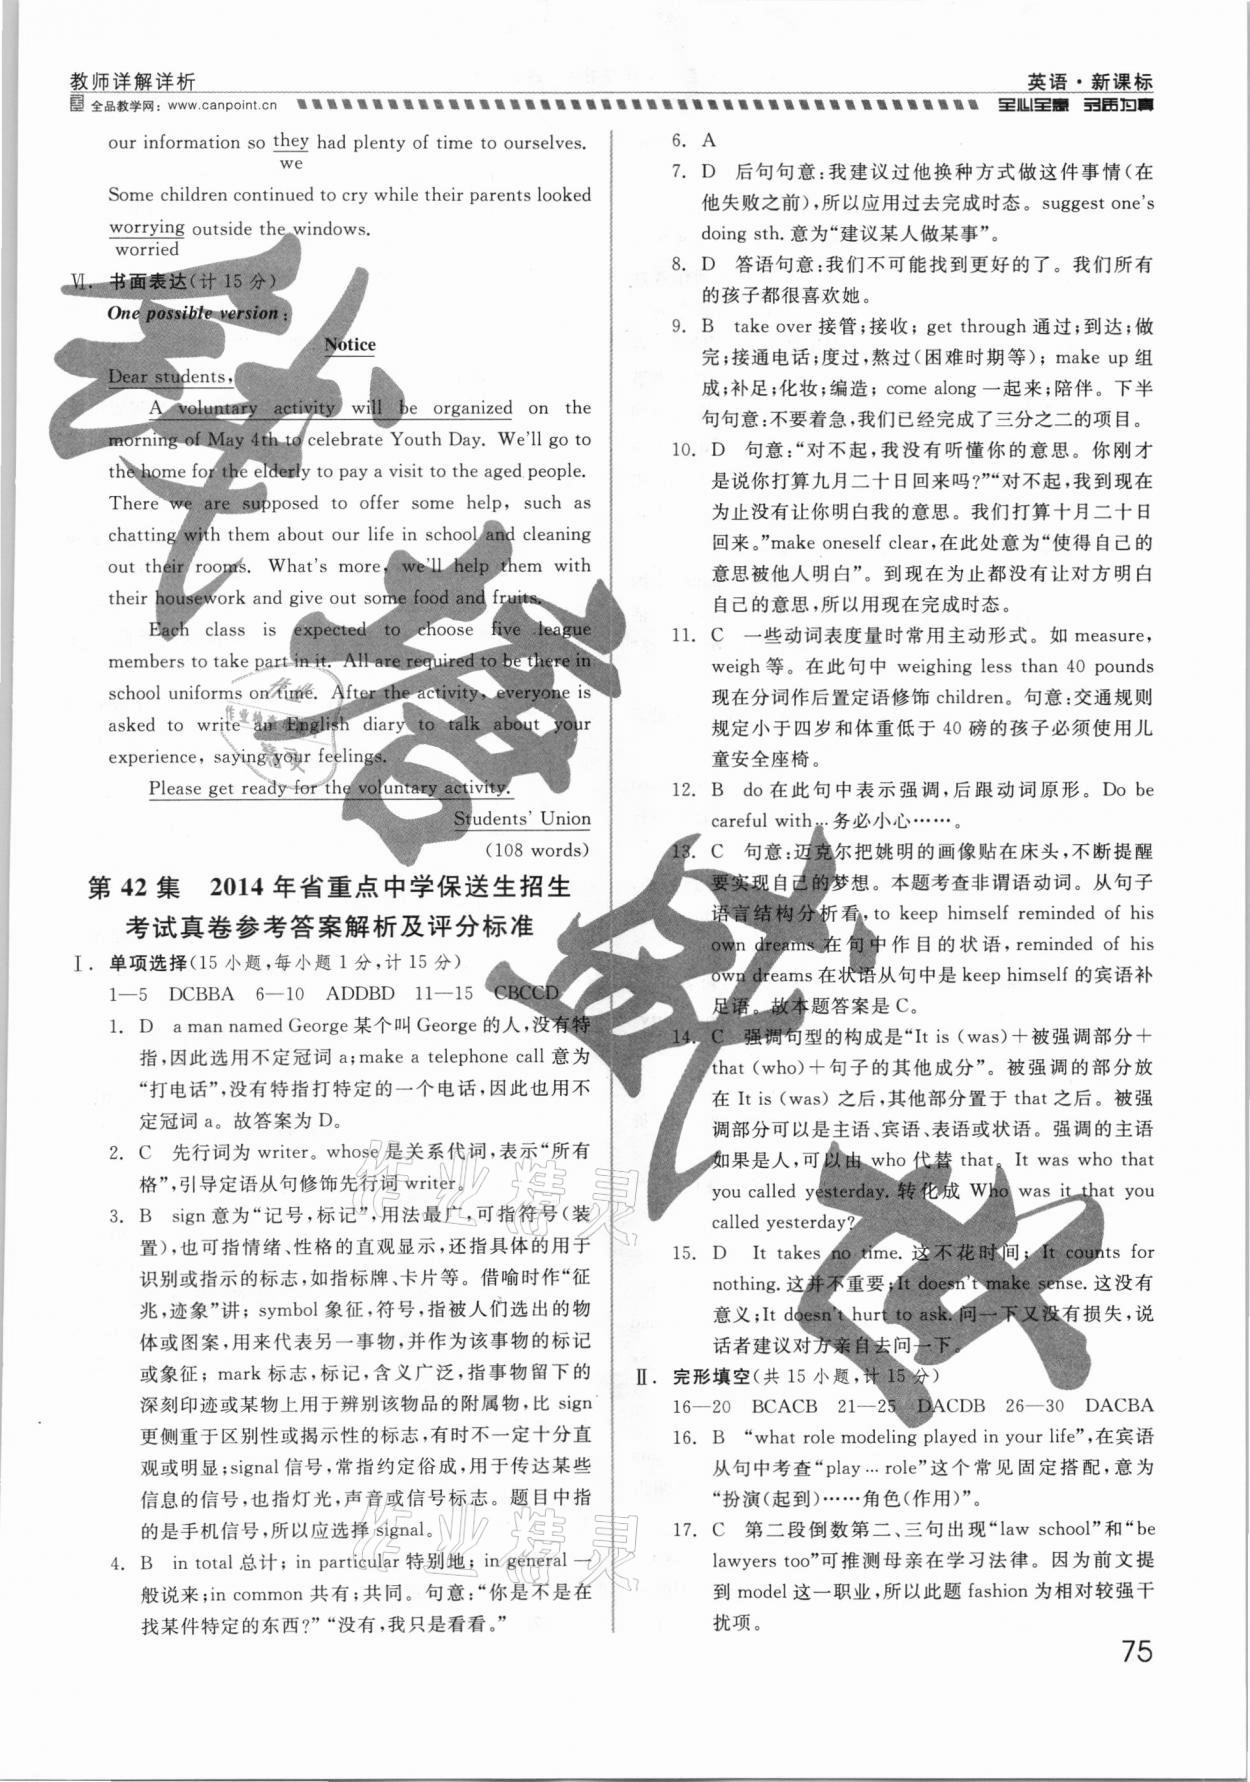 教师详解详析
英语·新课标
全品教学网：www.canpoint.cn
全心全意 字字为真
our information so they had plenty of time to ourselves.
we
Some children continued to cry while their parents looked
worrying outside the windows.
worried
Ⅵ. 书面表达(计 15 分)
One possible version:
Notice
Dear students,
A voluntary activity will be organized on the
morning of May 4th to celebrate Youth Day. We'll go to
the home for the elderly to pay a visit to the aged people.
There we are supposed to offer some help, such as
chatting with them about our life in school and cleaning
out their rooms. What's more, we'll help them with
their housework and give out some food and fruits.
Each class is expected to choose five league
members to take part in it. All are required to be there in
school uniforms on time. After the activity, everyone is
asked to write an English diary to talk about your
experience, saying your feelings.
Please get ready for the voluntary activity.
Students' Union
(108 words)
第 42 集 2014 年省重点中学保送生招生
考试真卷参考答案解析及评分标准
Ⅰ. 单项选择(15 小题,每小题 1 分,计 15 分)
1—5 DCBBA 6—10 ADDBD 11—15 CBCCD
1. D a man named George 某个叫George 的人,没有特
指,因此选用不定冠词 a;make a telephone call 意为
“打电话”,没有特指打特定的一个电话,因此也用不
定冠词 a。故答案为 D。
2. C 先行词为 writer。whose是关系代词,表示“所有
格”,引导定语从句修饰先行词 writer。
3. B sign 意为“记号,标记”,用法最广,可指符号(装
置),也可指情绪、性格的直观显示,还指具体的用于
识别或指示的标志,如指标牌、卡片等。借喻时作“征
兆,迹象”讲; symbol 象征,符号,指被人们选出的物
体或图案,用来代表另一事物,并作为该事物的标记
或象征; mark 标志,标记,含义广泛,指事物留下的
深刻印迹或某物上用于辨别该物品的附属物,比 sign
更侧重于区别性或揭示性的标志,有时不一定十分直
观或明显;signal 信号,常指约定俗成,用于传达某些
信息的信号,也指灯光,声音或信号标志。题目中指
的是手机信号,所以应选择 signal。
4. B in total 总计; in particular 特别地; in general 一
般说来;in common 共有;共同。句意:“你是不是在
找某件特定的东西?”“没有,我只是看看。”
6. A
7. D 后句句意:我建议过他换种方式做这件事情(在
他失败之前),所以应用过去完成时态。suggest one's
doing sth. 意为“建议某人做某事”。
8. D 答语句意:我们不可能找到更好的了。我们所有
的孩子都很喜欢她。
9. B take over 接管;接收; get through 通过;到达;做
完;接通电话;度过,熬过(困难时期等); make up 组
成;补足;化妆;编造; come along 一起来;陪伴。下半
句句意:不要着急,我们已经完成了三分之二的项目。
10. D 句意:“对不起,我没有听懂你的意思。你刚才
是说你打算九月二十日回来吗?”“对不起,我到现在
为止没有让你明白我的意思。我们打算十月二十日
回来。”make oneself clear,在此处意为“使得自己的
意思被他人明白”。到现在为止都没有让对方明白
自己的意思,所以用现在完成时态。
11. C 一些动词表度量时常用主动形式。如 measure,
weigh 等。在此句中 weighing less than 40 pounds
现在分词作后置定语修饰 children。句意:交通规则
规定小于四岁和体重低于 40 磅的孩子必须使用儿
童安全座椅。
12. B do 在此句中表示强调,后跟动词原形。Do be
careful with… 务必小心……。
13. C 句意:迈克尔把姚明的画像贴在床头,不断提醒
要实现自己的梦想。本题考查非谓语动词。从句子
语言结构分析看, to keep himself reminded of his
own dreams 在句中作目的状语, reminded of his
own dreams 在状语从句中是 keep himself 的宾语补
足语。故本题答案是 C。
14. C 强调句型的构成是“It is (was)＋被强调部分＋
that (who)＋句子的其他成分”。被强调的部分放
在 It is (was) 之后,其他部分置于 that 之后。被强
调部分可以是主语、宾语、表语或状语。强调的主语
如果是人,可以由 who 代替 that。It was who that
you called yesterday. 转化成 Who was it that you
called yesterday?
15. D It takes no time. 这不花时间; It counts for
nothing. 这并不重要;It doesn't make sense. 这没有
意义;It doesn't hurt to ask. 问一下又没有损失,说
话者建议对方亲自去问一下。
Ⅱ. 完形填空(共 15 小题,计 15 分)
16—20 BCACB 21—25 DACDB 26—30 DACBA
16. B “what role modeling played in your life”,在宾语
从句中考查“play … role”这个常见固定搭配,意为
“扮演(起到)……角色(作用)”。
17. C 第二段倒数第二、三句出现“law school”和“be
lawyers too”可推测母亲在学习法律。因为前文提
到 model 这一职业,所以此题 fashion 为相对较强干
扰项。
75
作业精灵
作业精灵